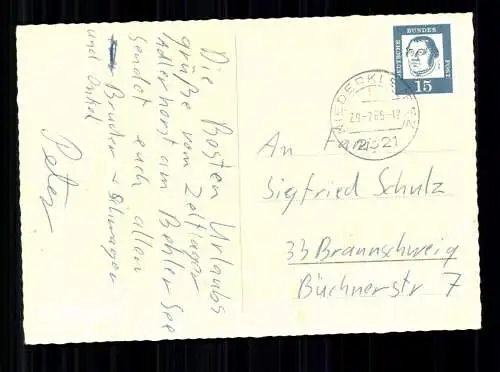 Die Besten Urlaubs
grüße vom Zeltlager
Adlerhorst am Behler See
sendet euch allen
Bruder + Schwager
und Onkel
Peter
DEUTSCHE BUNDES POST
15
29.-7.65-12
2321
An Fam.
Sigfried Schulz
33 Braunschweig
Büchnerstr 7